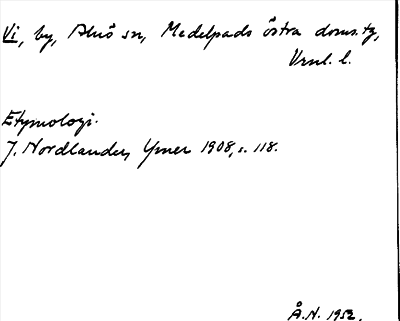 Vi, by, Alnö sn, Medelpads östra doms.tg,
Vrnl. l.
Etymologi.
J. Nordlander, Ymer 1908, s. 118.
Å.N. 1952.